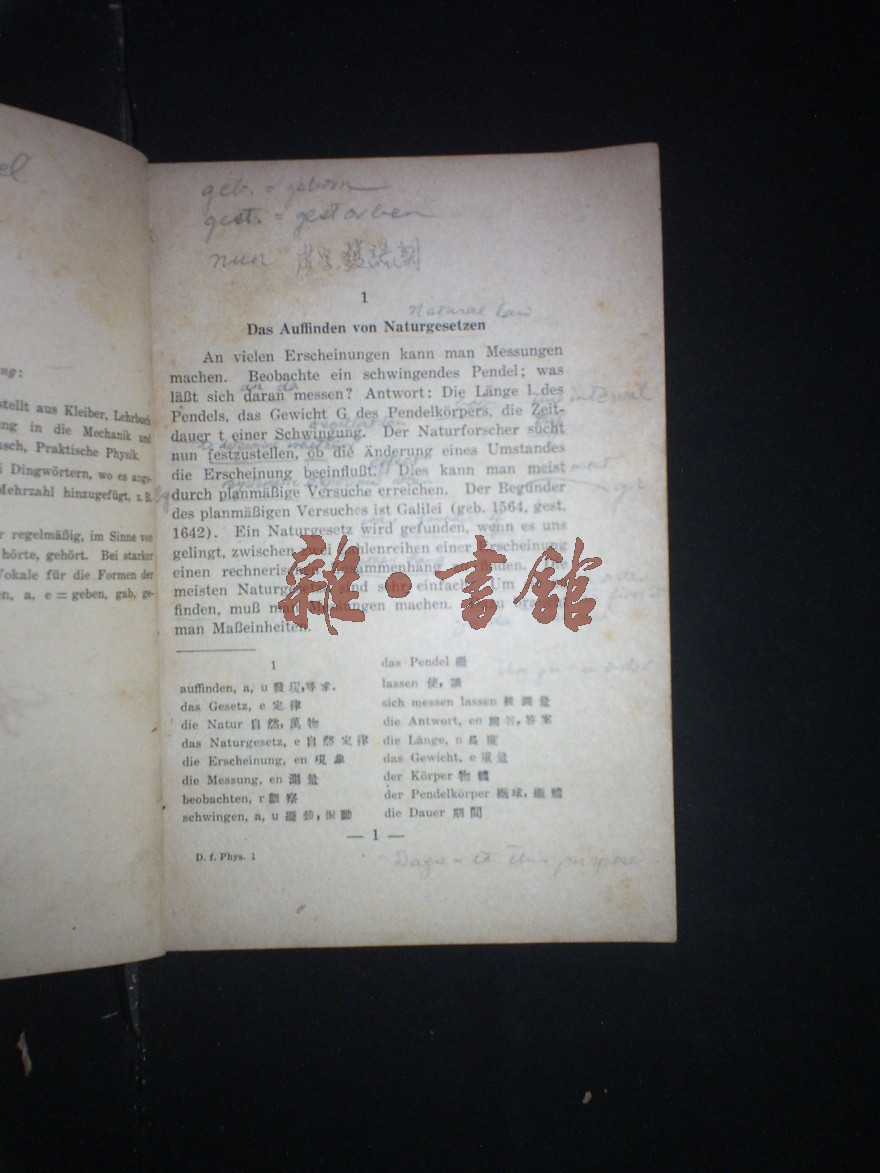 el
ng:
stellt aus Kleiber, Lehrbuch
ng in die Mechanik und
usch, Praktische Physik.
i Dingwörtern, wo es ange-
Mehrzahl hinzugefügt, z. B.
r regelmäßig, im Sinne von
hörte, gehört. Bei starker
Vokale für die Formen der
en, a, e = geben, gab, ge-
geb. = geborn
gest. = gestorben
nun 虚字,發語詞
1
Natural law
Das Auffinden von Naturgesetzen
An vielen Erscheinungen kann man Messungen
machen. Beobachte ein schwingendes Pendel; was
läßt sich daran messen? Antwort: Die Länge l des
Pendels, das Gewicht G des Pendelkörpers, die Zeit-
oscillation
dauer t einer Schwingung. Der Naturforscher sucht
nun festzustellen, ob die Änderung eines Umstandes
die Erscheinung beeinflußt. Dies kann man meist
durch planmäßige Versuche erreichen. Der Begünder
des planmäßigen Versuches ist Galilei (geb. 1564, gest.
1642). Ein Naturgesetz wird gefunden, wenn es uns
gelingt, zwischen zwei Zahlenreihen einer Erscheinung
einen rechnerischen Zusammenhang zu finden. Die
meisten Naturgesetze sind sehr einfach. Um sie zu
finden, muß man Messungen machen. Dazu braucht
man Maßeinheiten.
雜·書館
1
auffinden, a, u 發現,尋求.
das Gesetz, e 定律
die Natur 自然,萬物
das Naturgesetz, e 自然定律
die Erscheinung, en 現象
die Messung, en 測量
beobachten, r 觀察
schwingen, a, u 擺動,振動
das Pendel 擺
lassen 使,讓
sich messen lassen 被測量
die Antwort, en 回答,答案
die Länge, n 長度
das Gewicht, e 重量
der Körper 物體
der Pendelkörper 擺球,擺體
die Dauer 期間
— 1 —
D. f. Phys. 1
Dazu = to this purpose